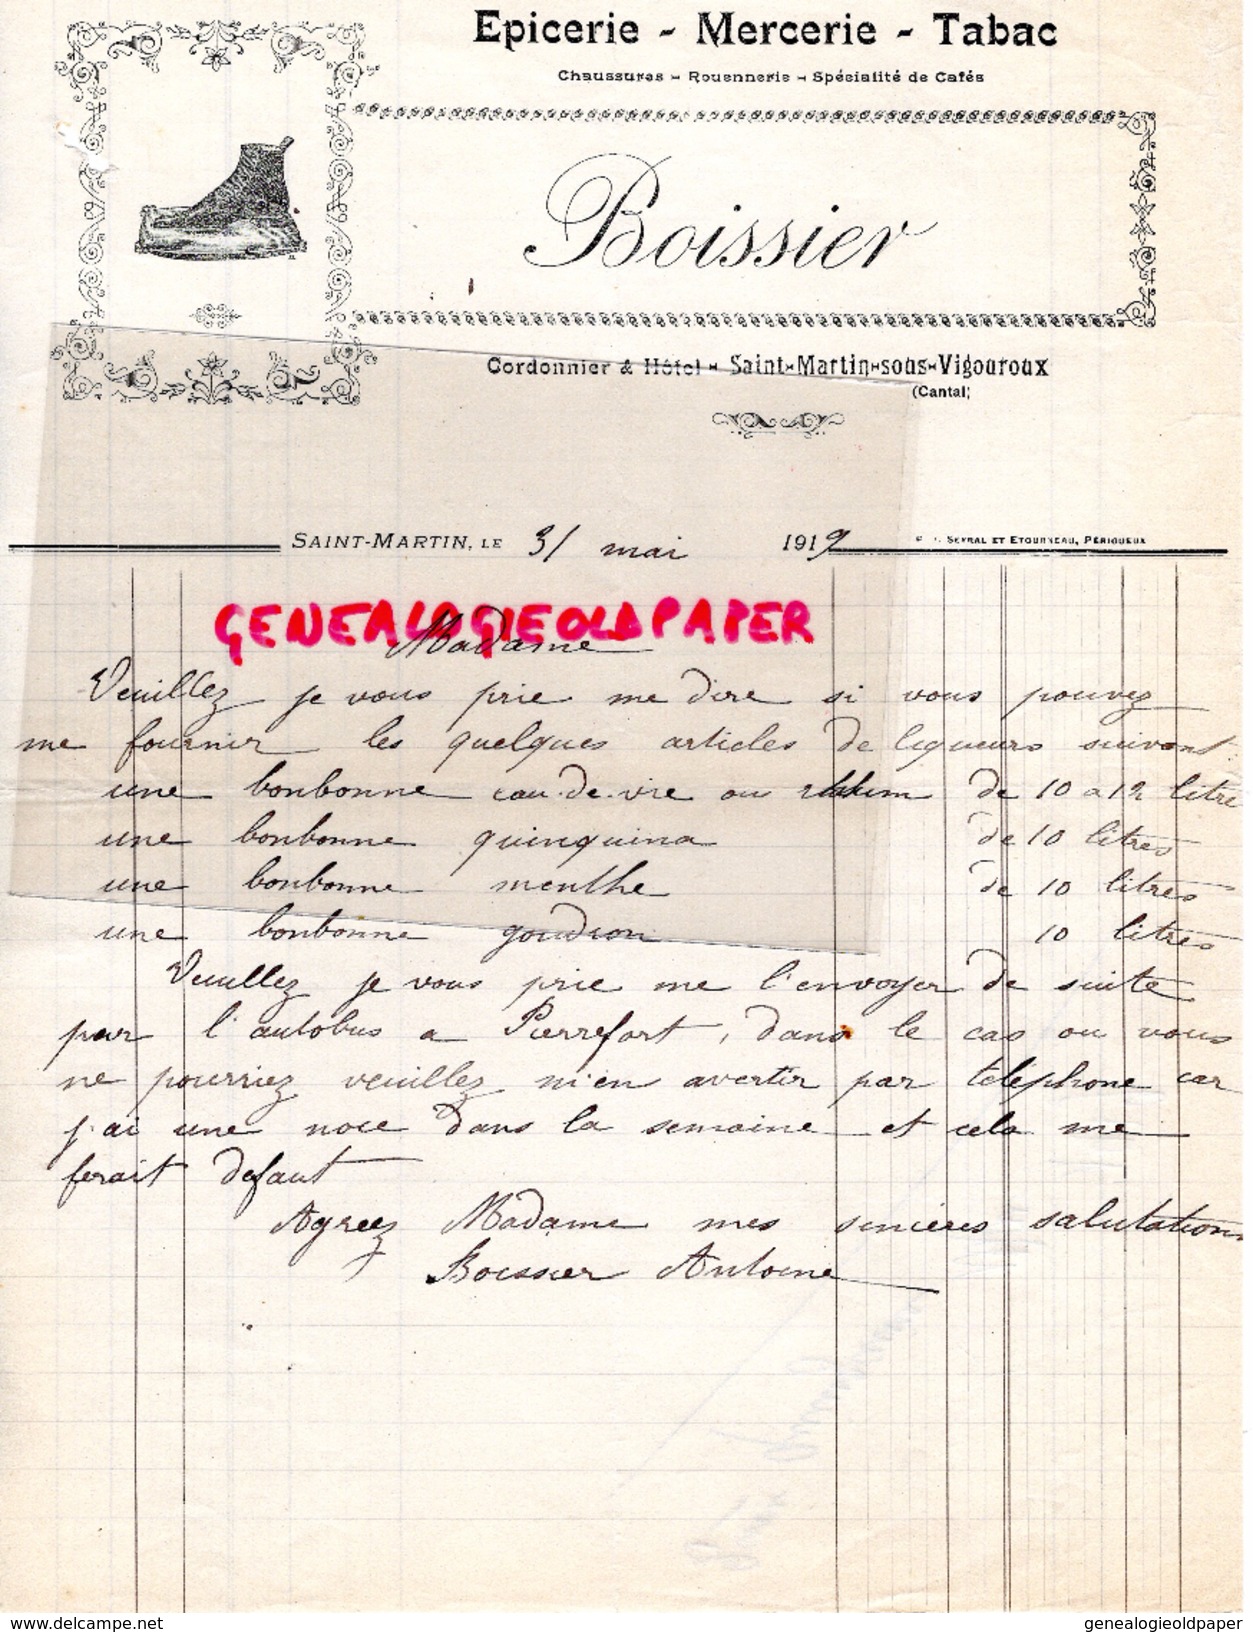 Epicerie - Mercerie - Tabac
Chaussures - Rouennerie - Spécialité de Cafés
Boissier
Cordonnier & Hôtel - Saint-Martin-sous-Vigouroux
(Cantal)
SAINT-MARTIN, LE 31 mai 1919
SEYRAL ET ETOURNEAU, PÉRIGUEUX
GENEALOGIEOLDPAPER
Madame
Veuillez je vous prie me dire si vous pouvez
me fournir les quelques articles de liqueurs suivant
une bonbonne eau-de-vie ou rhum de 10 a 12 litre
une bonbonne quinquina de 10 litres
une bonbonne menthe de 10 litres
une bonbonne goudron 10 litres
Veuillez je vous prie me l'envoyer de suite
par l'autobus a Pierrefort, dans le cas ou vous
ne pourriez veuillez m'en avertir par téléphone car
j'ai une noce dans la semaine et cela me
ferait defaut
Agreez Madame mes sincères salutations
Boissier Antoine
www.delcampe.net
genealogieoldpaper